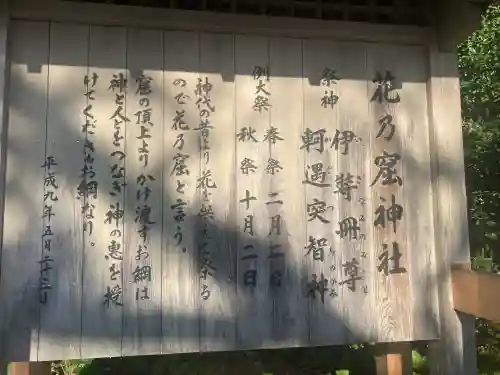 花乃窟神社
祭神
伊弉冊尊
軻遇突智神
例大祭
春祭 二月二日
秋祭 十月二日
神代の昔より花を供えて祭る
ので花乃窟と言う。
窟の頂上よりかけ渡すお綱は
神と人とをつなぎ神の恵を授
けてくださるお綱なり。
平成九年五月二十三日